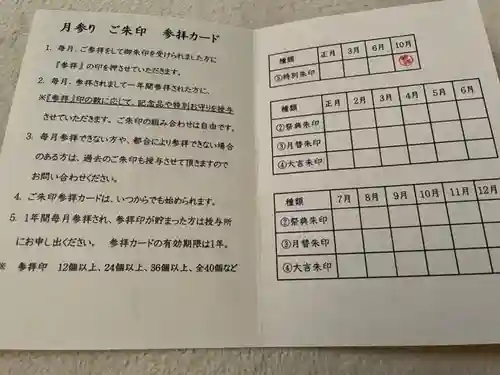 月参り ご朱印 参拝カード
1. 毎月、ご参拝をして御朱印を受けられました方に
『参拝』の印を押させていただきます。
2. 毎月、参拝されまして一年間参拝された方に、
※『参拝』印の数に応じて、記念品や特別お守りを授与
させていただきます。ご朱印の組み合わせは自由です。
3. 毎月参拝できない方や、都合により参拝できない場合
のある方は、過去のご朱印も授与させて頂きますので
お問い合わせください。
4. ご朱印参拝カードは、いつからでも始められます。
5. 1年間毎月参拝され、参拝印が貯まった方は授与所
にお申し出ください。 参拝カードの有効期限は1年。
※ 参拝印 12個以上、24個以上、36個以上、全40個など
種類 正月 3月 6月 10月
①特別朱印
種類 正月 2月 3月 4月 5月 6月
②祭典朱印
③月替朱印
④大吉朱印
種類 7月 8月 9月 10月 11月 12月
②祭典朱印
③月替朱印
④大吉朱印